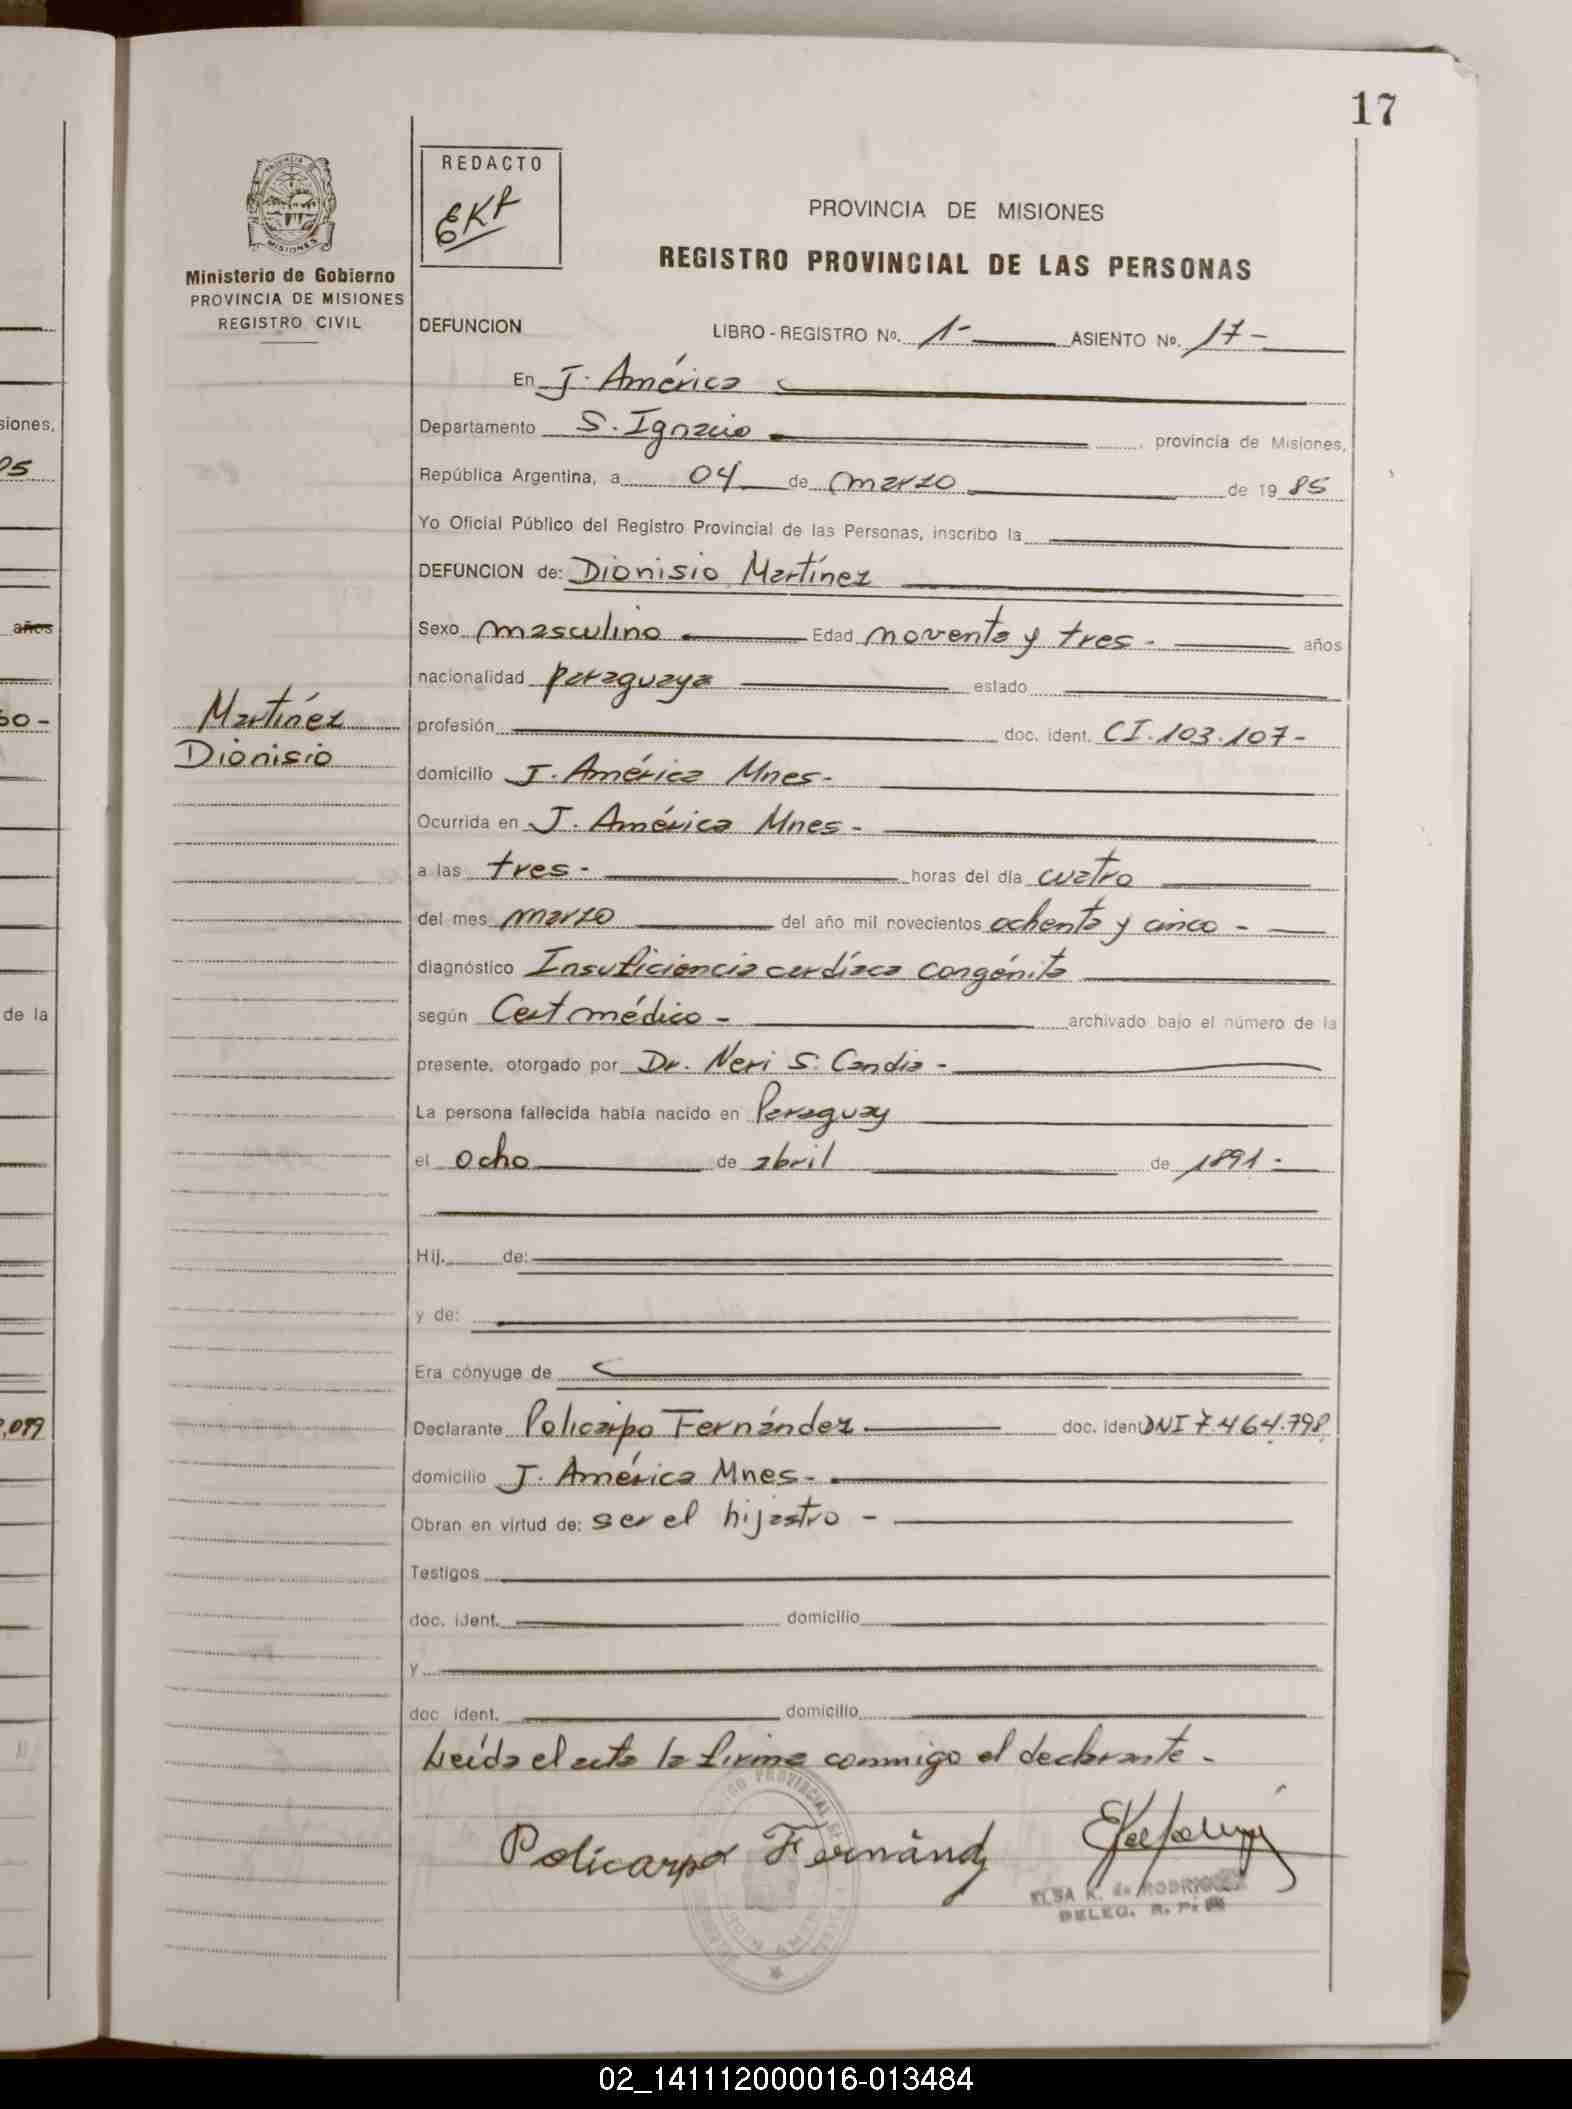 17
REDACTO
EKR
PROVINCIA DE MISIONES
REGISTRO PROVINCIAL DE LAS PERSONAS
Ministerio de Gobierno
PROVINCIA DE MISIONES
REGISTRO CIVIL
DEFUNCION LIBRO - REGISTRO No. 1- ASIENTO No. 17-
En J. América
siones,
Departamento S. Ignacio , provincia de Misiones,
República Argentina, a 04 de marzo de 19 85
Yo Oficial Público del Registro Provincial de las Personas, inscribo la
DEFUNCION de: Dionisio Martínez
años
Sexo masculino Edad noventa y tres - años
nacionalidad paraguaya estado
Martínez
Dionisio
profesión doc. ident. CI. 103.107-
domicilio J. América Mnes-
Ocurrida en J. América Mnes-
a las tres - horas del día cuatro
del mes marzo del año mil novecientos ochenta y cinco -
diagnóstico Insuficiencia cardíaca congénita
de la
según Cert médico - archivado bajo el número de la
presente, otorgado por Dr. Neri S. Candia -
La persona fallecida había nacido en Paraguay
el ocho de abril de 1891-
Hij. de:
y de:
Era cónyuge de
Declarante Policarpo Fernández doc. ident DNI 7.464.798
domicilio J. América Mnes-
Obran en virtud de: ser el hijastro -
Testigos
doc. ident. domicilio
y
doc ident. domicilio
Leída el acta la firma conmigo el declarante -
Policarpo Fernánd
ELSA K. de RODRIGUEZ
DELEG. R. P.
02_141112000016-013484